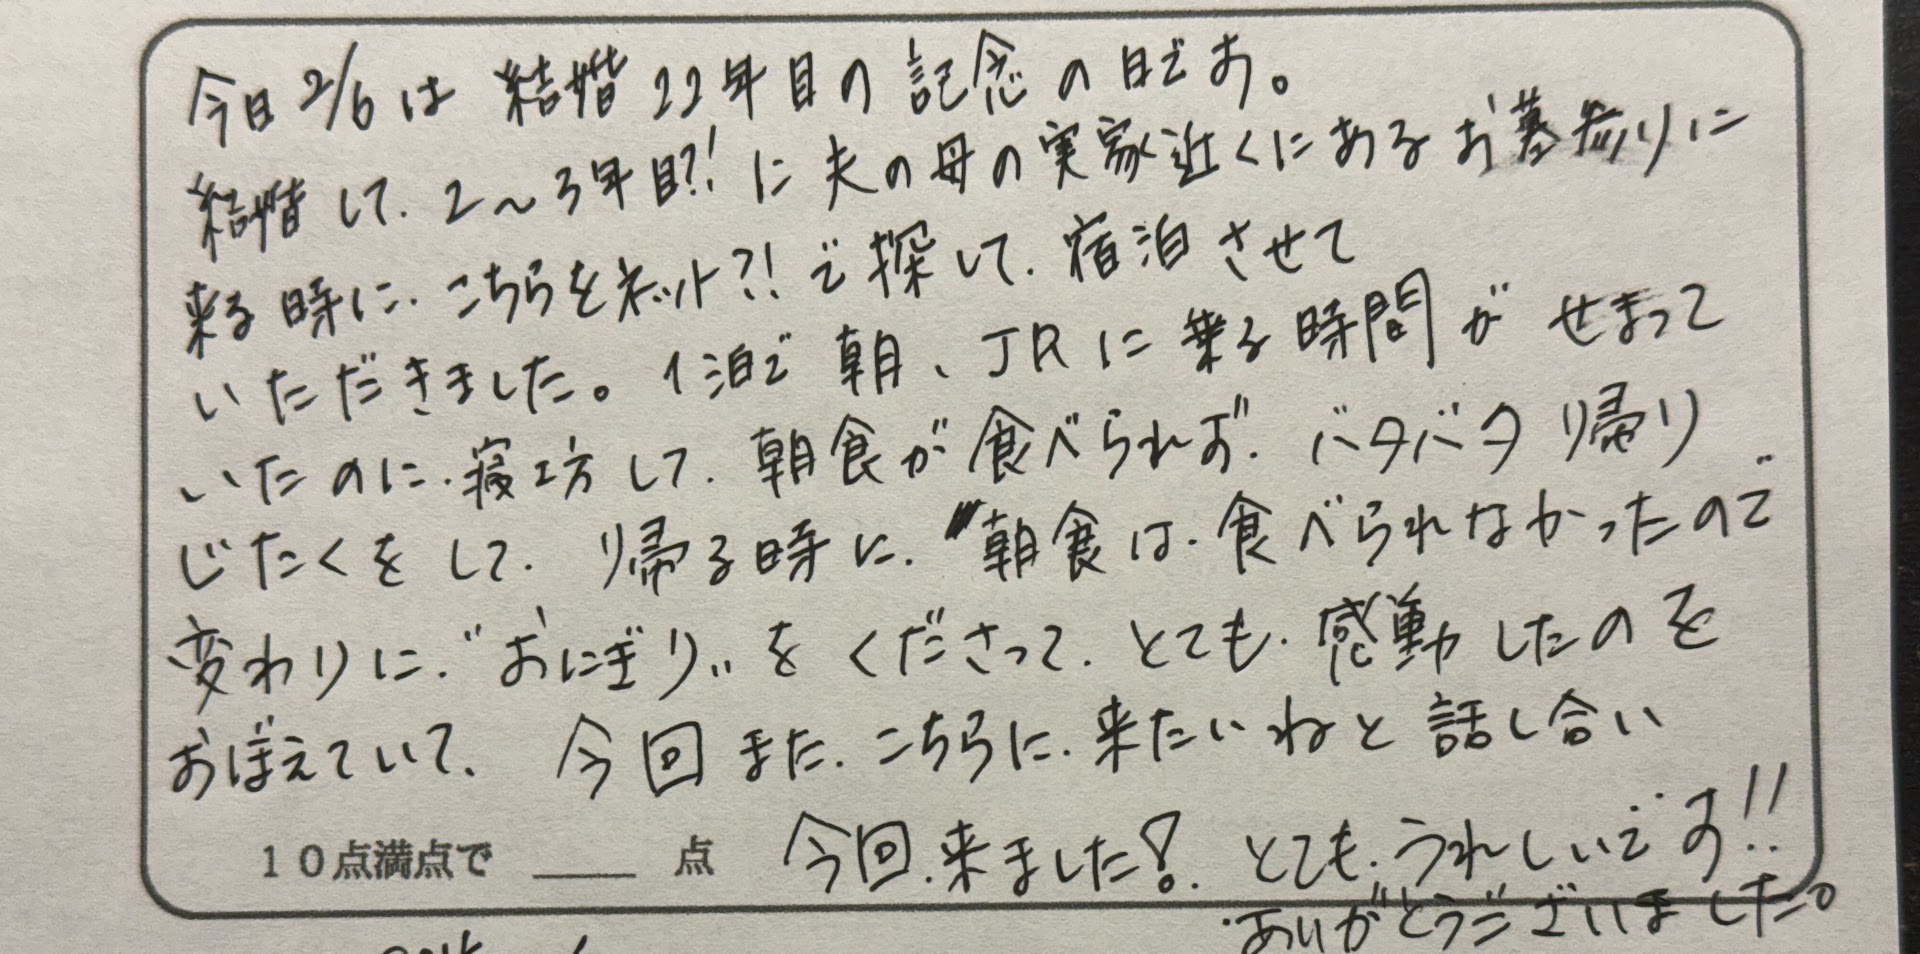 今日2/6は結婚22年目の記念の日です。
結婚して.2〜3年目?!に夫の母の実家近くにあるお墓参りに
来る時に.こちらをネット?!で探して.宿泊させて
いただきました。1泊で朝、JRに乗る時間がせまって
いたのに.寝坊して.朝食が食べられず.バタバタ帰り
じたくをして.帰る時に.朝食は.食べられなかったので
変わりに.“おにぎり”をくださって.とても.感動したのを
おぼえていて、今回また.こちらに.来たいねと話し合い
10点満点で____点 今回.来ました!.とても.うれしいです!!
ありがとうございました。